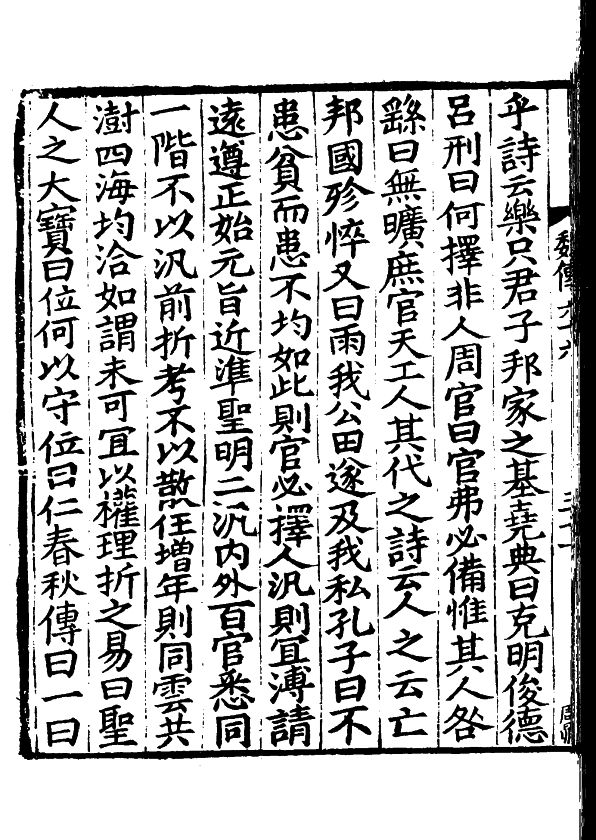 魏傳六十六
乎詩云樂只君子邦家之基堯典曰克明俊德
呂刑曰何擇非人周官曰官弗必備惟其人咎
繇曰無曠庶官天工人其代之詩云人之云亡
邦國殄悴又曰雨我公田遂及我私孔子曰不
患貧而患不均如此則官必擇人汎則冝溥請
遠遵正始元旨近準聖明二汎內外百官悉同
一階不以汎前折考不以散任增年則同雲共
澍四海均洽如謂未可冝以權理折之易曰聖
人之大寶曰位何以守位曰仁春秋傳曰一曰